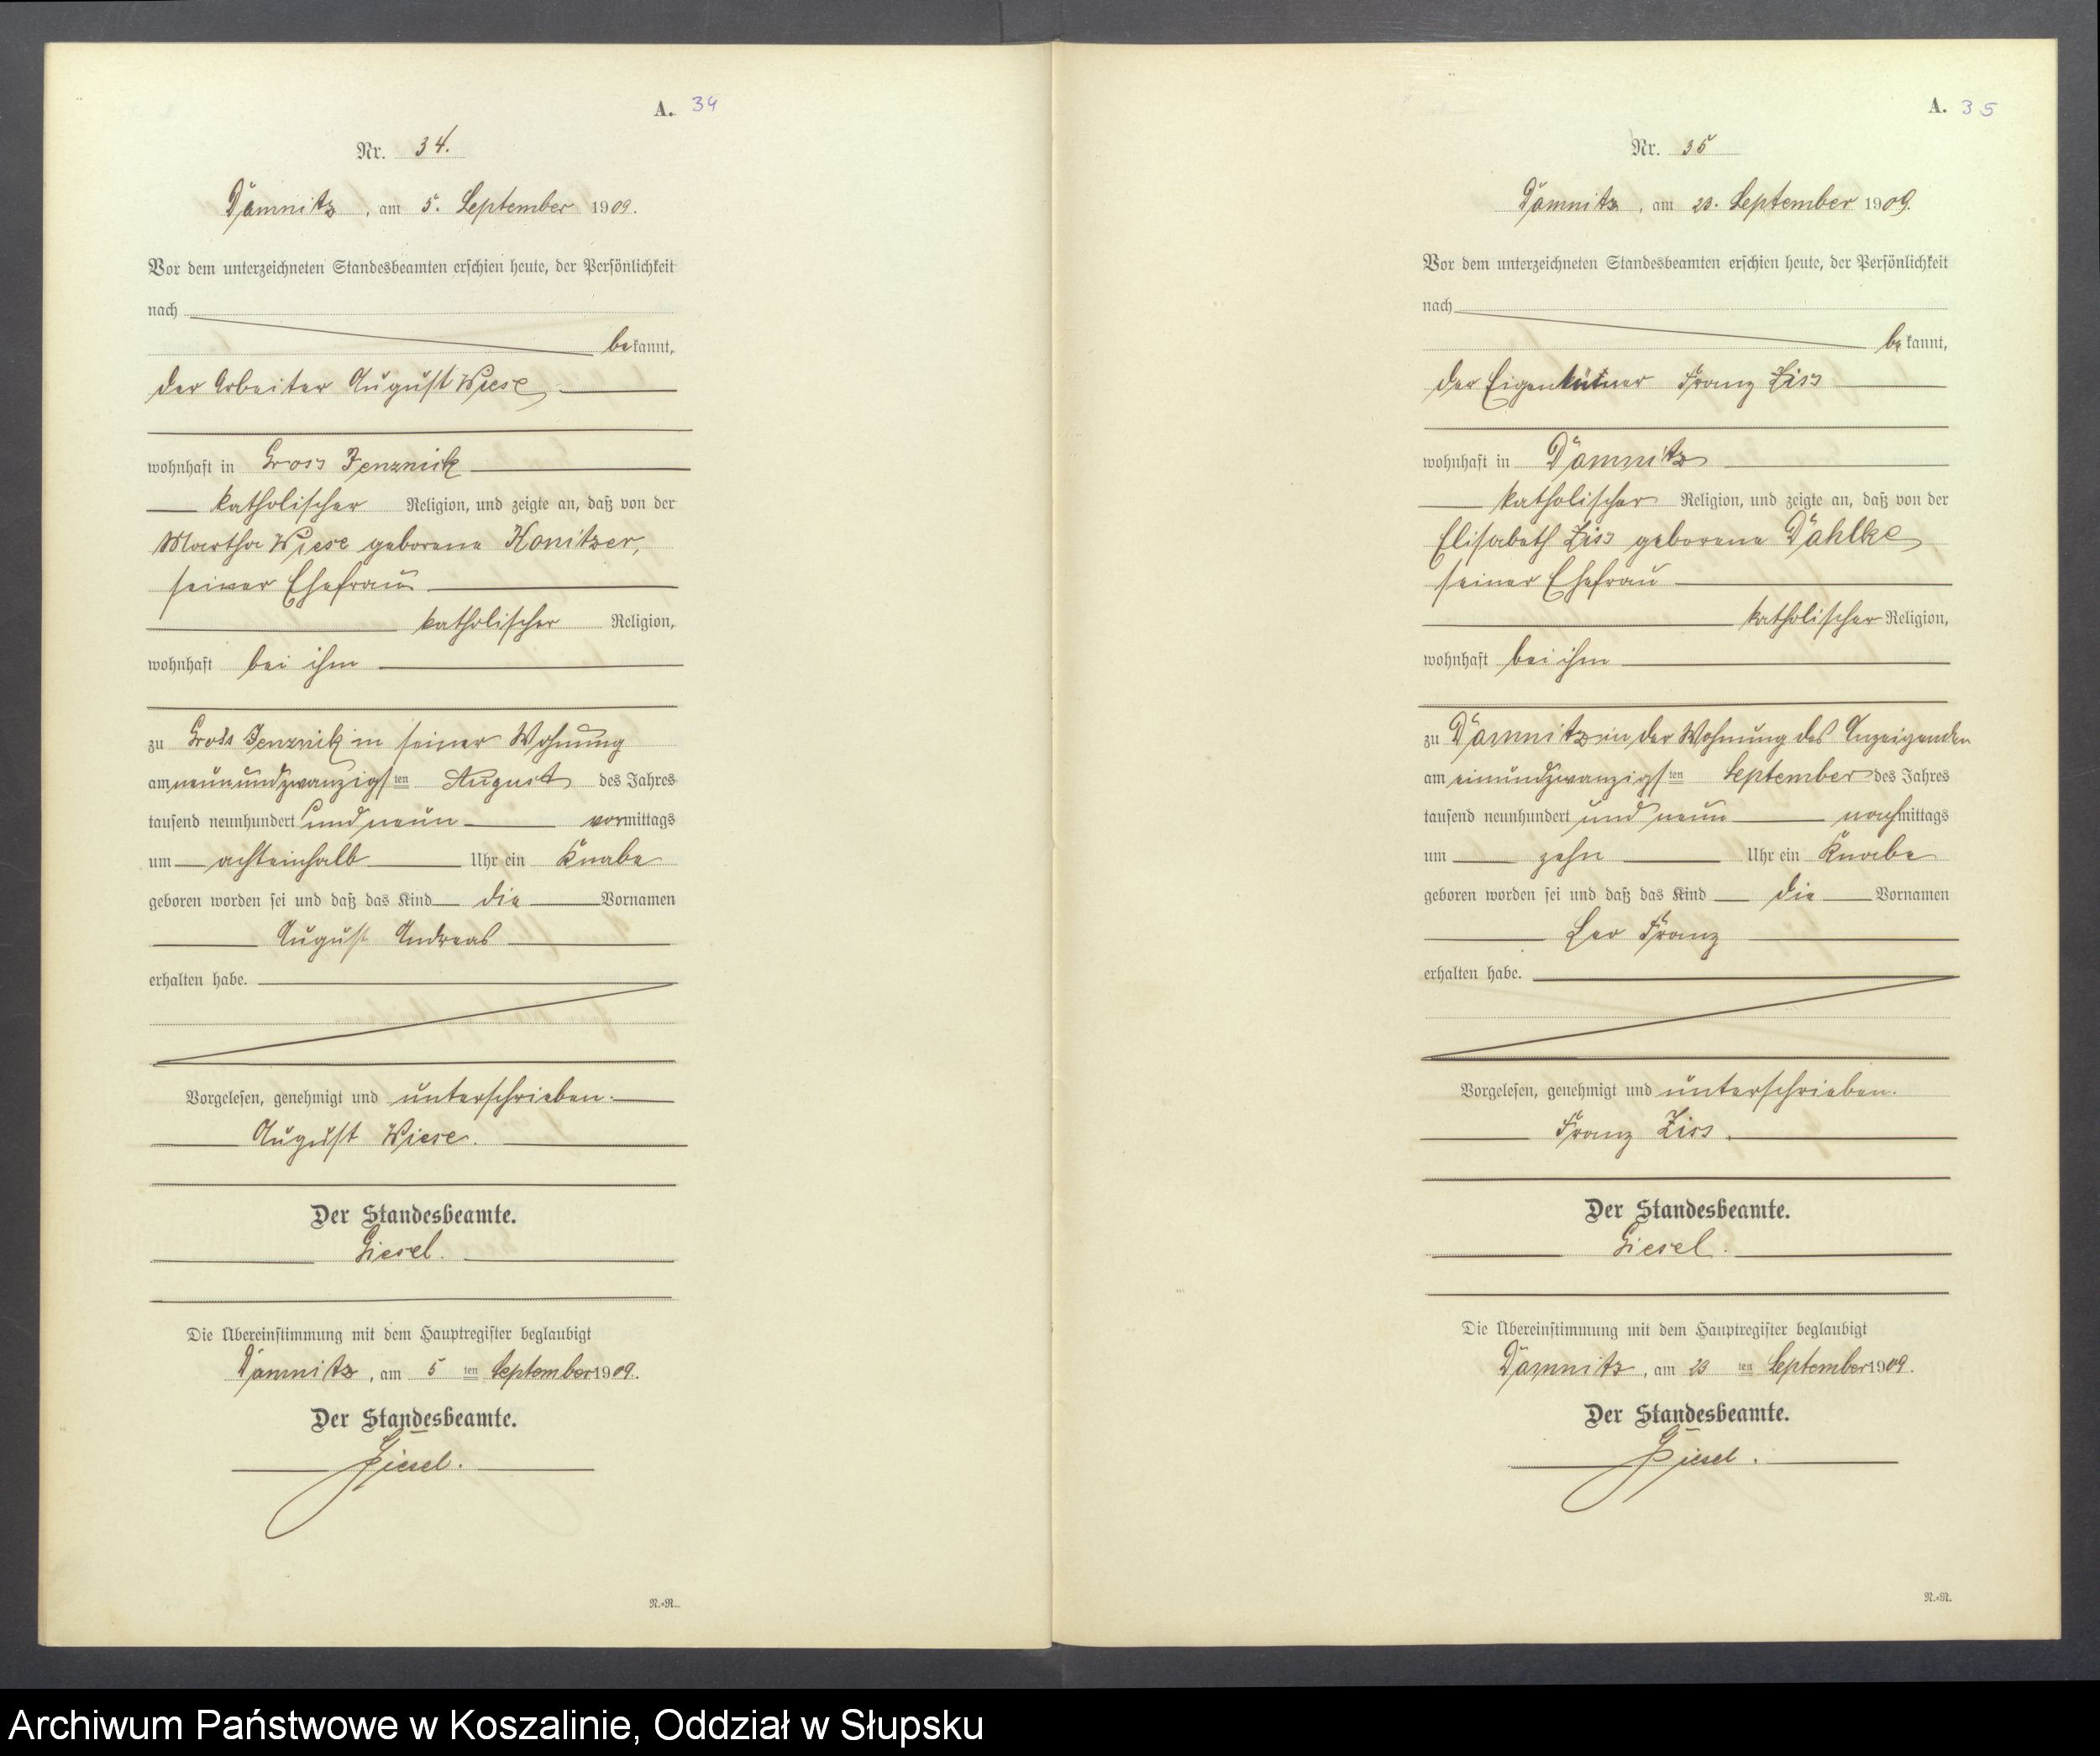 A. 34
Nr. 34.
Damnitz, am 5. September 1909.
Vor dem unterzeichneten Standesbeamten erschien heute, der Persönlichkeit
nach
bekannt,
der Arbeiter August Wiese
wohnhaft in Gross Jenznick
katholischer Religion, und zeigte an, daß von der
Martha Wiese geborene Konitzer,
seiner Ehefrau
katholischer Religion,
wohnhaft bei ihm
zu Gross Jenznik in seiner Wohnung
am neunundzwanzigsten August des Jahres
tausend neunhundert und neun vormittags
um achteinhalb Uhr ein Knabe
geboren worden sei und daß das Kind die Vornamen
August Andreas
erhalten habe.
Vorgelesen, genehmigt und unterschrieben.
August Wiese.
Der Standesbeamte.
Giesel.
Die Übereinstimmung mit dem Hauptregister beglaubigt
Damnitz, am 5 ten September 1909.
Der Standesbeamte.
Giesel.
R.=R.
A. 35
Nr. 35
Damnitz, am 23. September 1909.
Vor dem unterzeichneten Standesbeamten erschien heute, der Persönlichkeit
nach
bekannt,
der Eigenkätner Franz Ziss
wohnhaft in Damnitz
katholischer Religion, und zeigte an, daß von der
Elisabeth Ziss geborene Dahlke
seiner Ehefrau
katholischer Religion,
wohnhaft bei ihm
zu Damnitz in der Wohnung des Anzeigenden
am einundzwanzigsten September des Jahres
tausend neunhundert und neun nachmittags
um zehn Uhr ein Knabe
geboren worden sei und daß das Kind die Vornamen
Leo Franz
erhalten habe.
Vorgelesen, genehmigt und unterschrieben.
Franz Ziss.
Der Standesbeamte.
Giesel.
Die Übereinstimmung mit dem Hauptregister beglaubigt
Damnitz, am 23 ten September 1909.
Der Standesbeamte.
Giesel.
R.=R.
Archiwum Państwowe w Koszalinie, Oddział w Słupsku